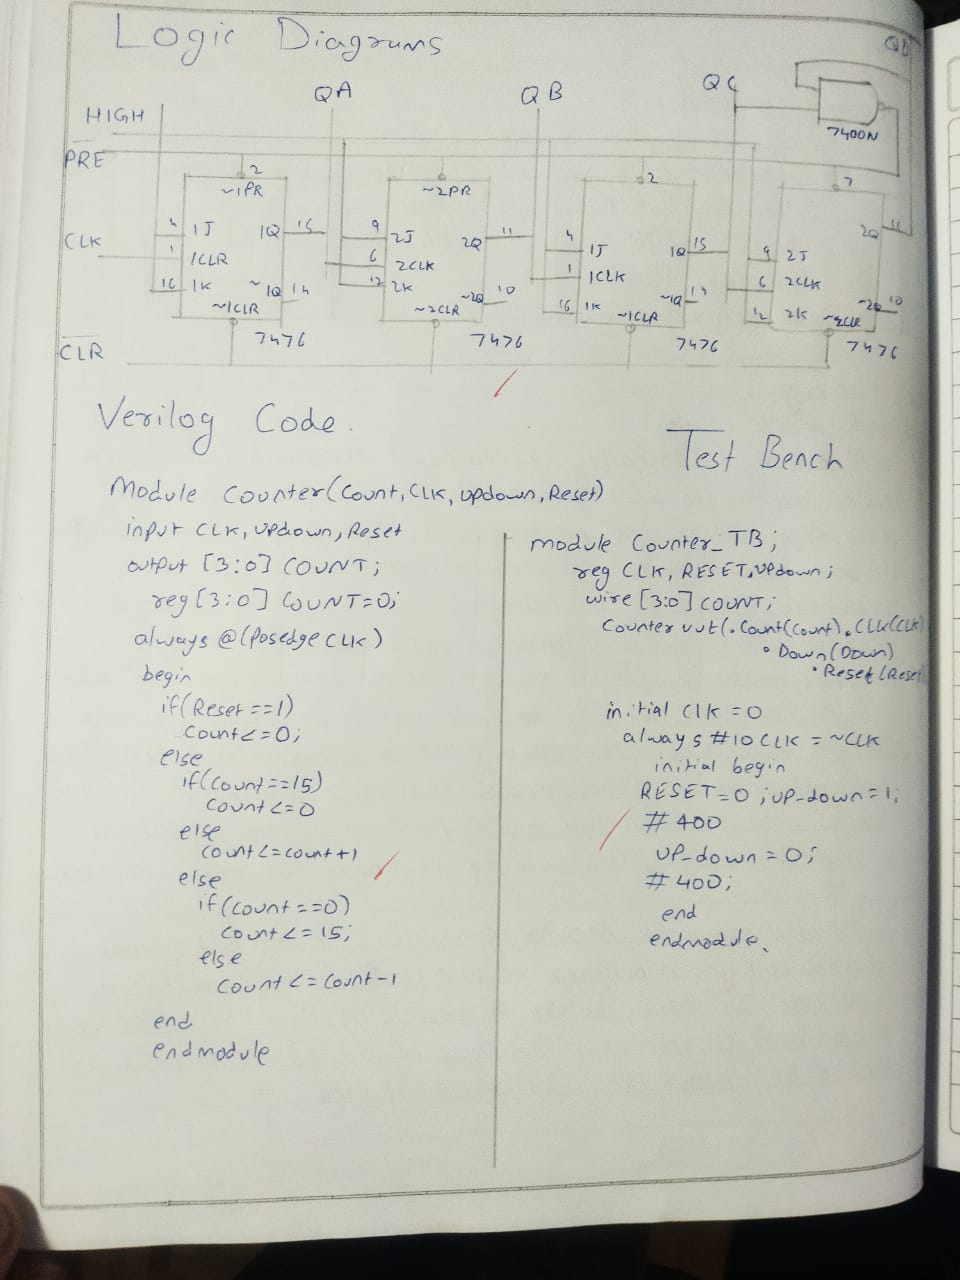 Logic Diagrams
QA QB QC QD
HIGH
7400N
PRE
2 2 7
~1PR ~2PR
4 1J 1Q 15 9 2J 2Q 11 4 1J 1Q 15 9 2J 2Q 11
CLK 1 1CLR 6 2CLK 1 1CLK 6 2CLK
16 1K ~1Q 14 12 2K ~2Q 10 16 1K ~1Q 14 12 2K ~2Q 10
~1CLR ~2CLR ~1CLR ~2CLR
7476 7476 7476 7476
CLR
Verilog Code.
Module Counter(Count, CLK, updown, Reset)
input CLK, Updown, Reset
output [3:0] COUNT;
reg [3:0] COUNT=0;
always @(Posedge CLK)
begin
if(Reset==1)
Count<=0;
else
if(Count==15)
Count<=0
else
Count<=count+1
else
if(Count==0)
Count<=15;
else
Count<=Count-1
end
endmodule
Test Bench
module Counter_TB;
reg CLK, RESET, UPdown;
wire [3:0] COUNT;
Counter uut(.Count(Count).CLK(CLK)
.Down(Down)
.Reset(Reset
initial Clk=0
always #10 CLK=~CLK
initial begin
RESET=0; UP-down=1;
#400
UP-down=0;
#400;
end
endmodule.